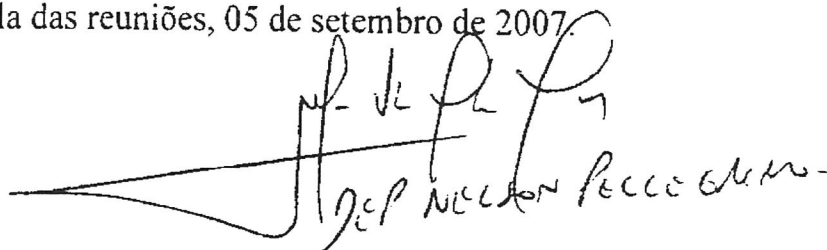 la das reuniões, 05 de setembro de 2007.
DEP NELSON PELLEGRINO-